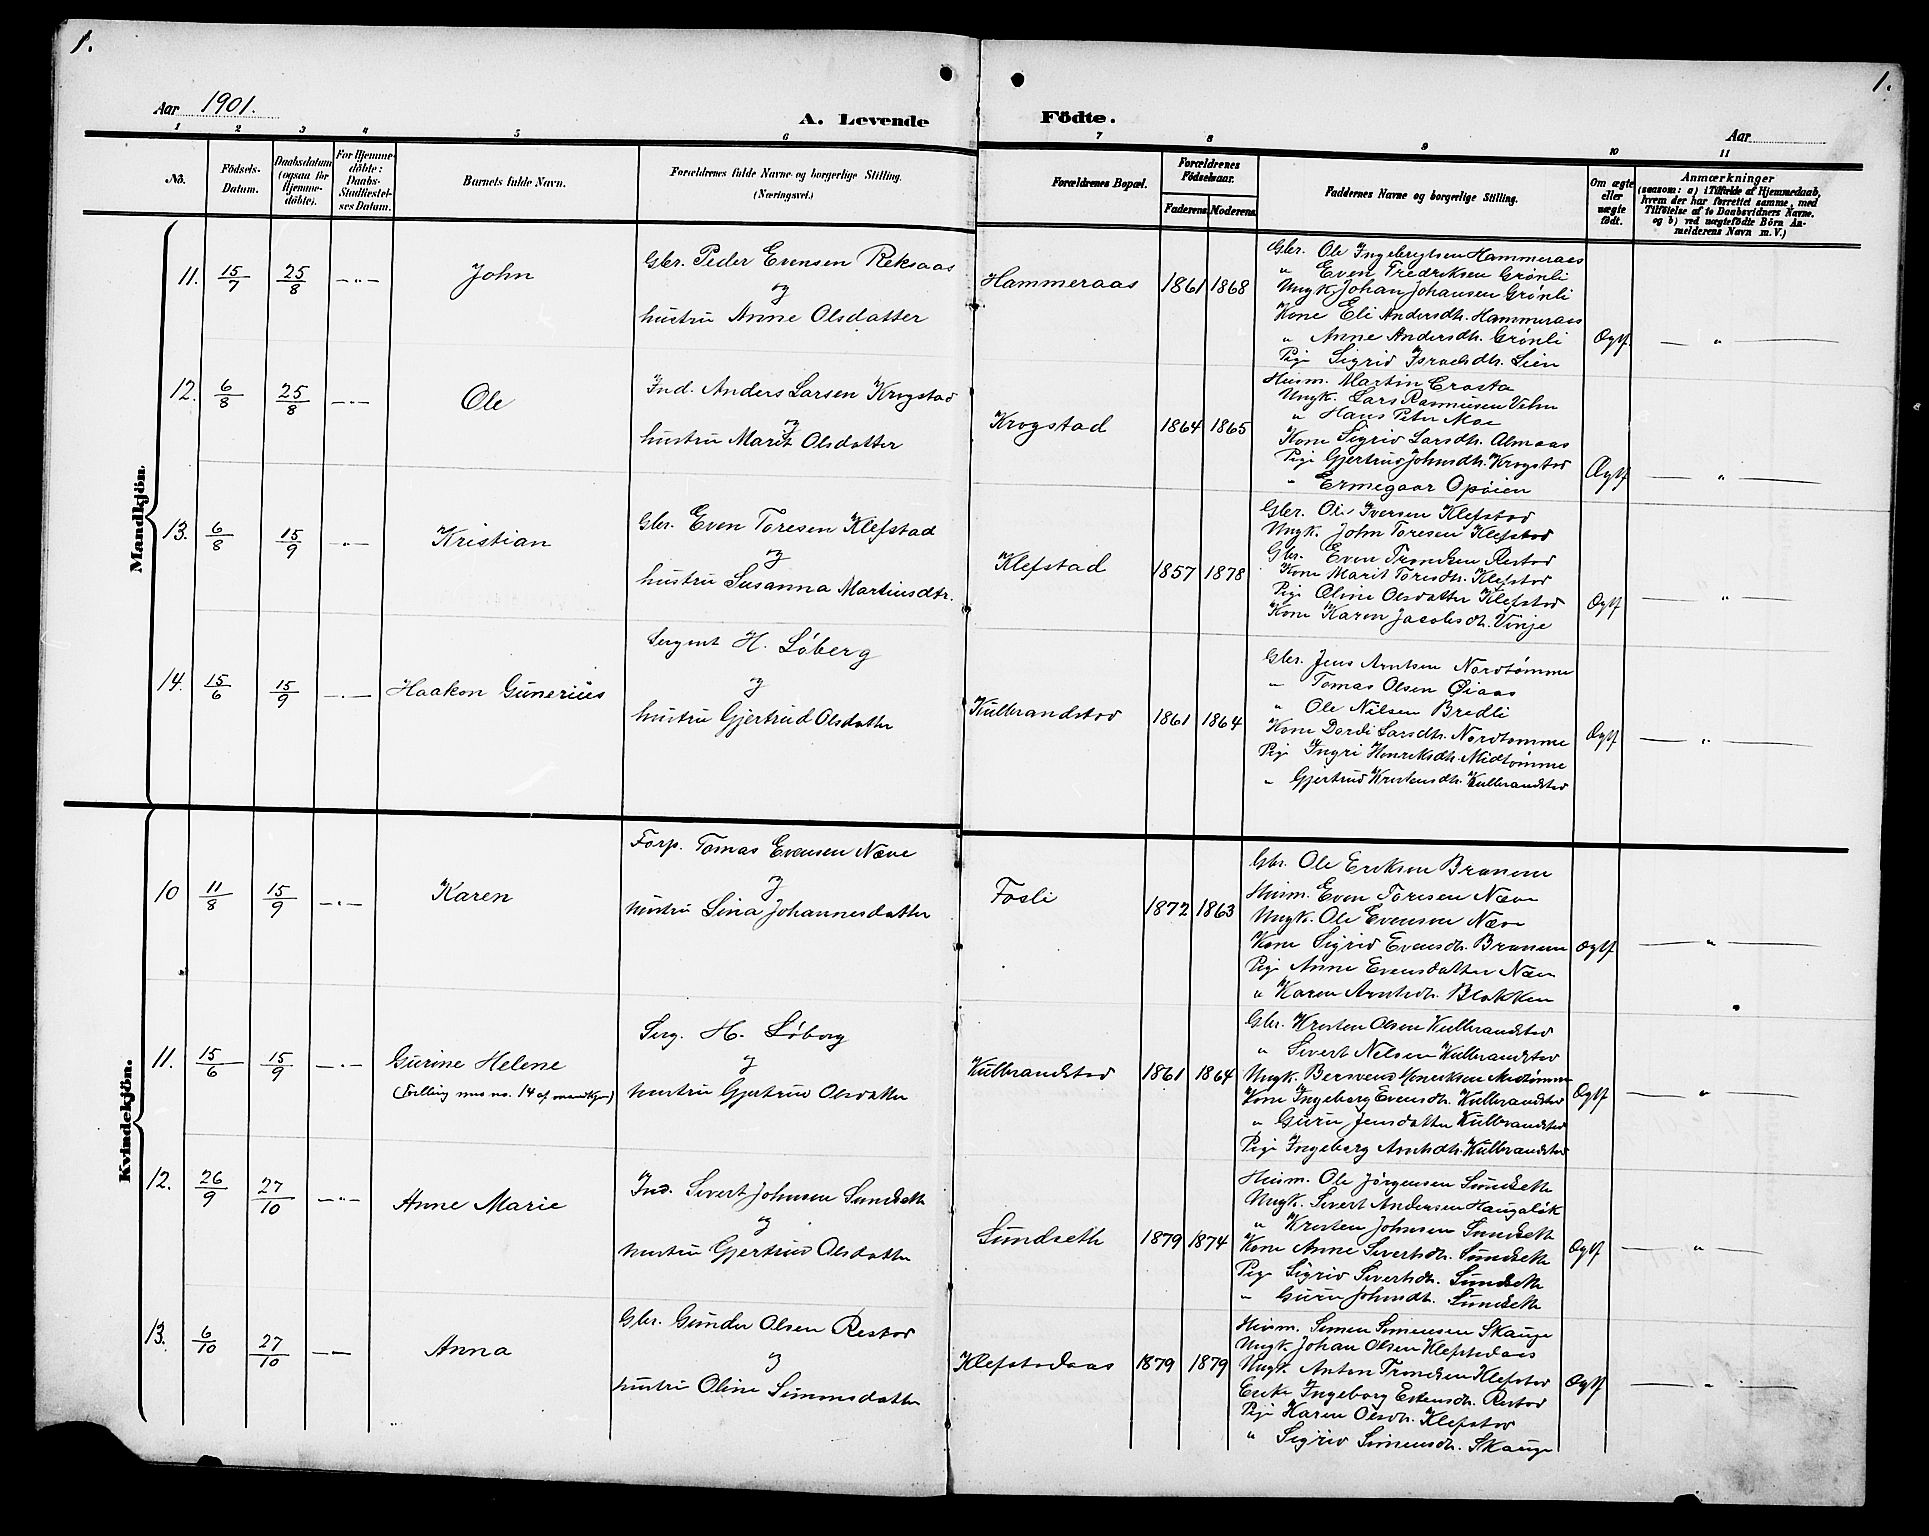 1.
1.
Aar 1901.
A. Levende Födte.
Aar
1 2 3 4 5 6 7 8 9 10 11
No.
Födsels-Datum.
Daabsdatum (ogsaa for Hjemme-döbte).
For Hjemme-döbte: Daabs-Stadfæstel-ses Datum.
Barnets fulde Navn.
Forældrenes fulde Navne og borgerlige Stilling. (Næringsvei.)
Forældrenes Bopæl.
Forældrenes Födselsaar.
Faderens. Moderens.
Faddernes Navne og borgerlige Stilling.
Om ægte eller uægte födt.
Anmærkninger
(saasom: a) i Tilfælde af Hjemmedaab, hvem der har forrettet samme, med Tilföielse af to Daabsvidners Navne, og b) ved uægtefödte Börn An-melderens Navn m. V.)
Mandkjön.
11. 15/7 25/8 —"— John
Gbr. Peder Evensen Reksaas
og
hustru Anne Olsdatter
Hammeraas 1861 1868
Gbr. Ole Ingebrigtsen Hammeraas
" Even Fredriksen Grønli
Ungk. Johan Johansen Grønli
Kone Eli Andersdtr. Hammeraas
" Anne Andersdtr. Grønli
Pige Sigrid Israelsdtr. Lien
Ægtf. — " —
12. 6/8 25/8 —"— Ole
Ind. Anders Larsen Krogstad
og
hustru Marit Olsdatter
Krogstad 1864 1865
Husm. Martin Crosta
Ungk. Lars Rasmussen Vehn
" Hans Peter Moe
Kone Sigrid Larsdtr. Almaas
Pige Gjertrud Johnsdtr. Krogstad
" Ermegaar Opøien
Ægtf — " —
13. 6/8 15/9 —"— Kristian
Gbr. Even Toresen Klefstad
og
hustru Susanna Martinsdtr.
Klefstad 1857 1878
Gbr. Ole Iversen Klefstad
Ungk. John Toresen Klefstad
Gbr. Even Trondsen Restad
Kone Marit Toresdtr. Klefstad
Pige Oline Olsdatter Klefstad
Kone Karen Jacobsdtr. Vinje
Ægtf — " —
14. 15/6 15/9 —"— Haakon Gunerius
Sergent H. Löberg
og
hustru Gjertrud Olsdatter
Kulbrandstad 1861 1864
Gbr. Jens Arntsen Nordtømme
" Tomas Olsen Øiaas
" Ole Nilsen Bredli
Kone Dordi Larsdtr. Nordtømme
Pige Ingri Henriksdtr. Midtømme
" Gjertrud Kristensdtr. Kulbrandstad
Ægtf — " —
Kvindekjön.
10 11/8 15/9 —"— Karen
Forp. Tomas Evensen Næve
og
hustru Lina Johannesdatter
Fosli 1872 1863
Gbr. Ole Eriksen Branem
Husm. Even Toresen Næve
Ungk. Ole Evensen Næve
Kone Sigrid Evensdtr. Branem
Pige Anne Evensdatter Næve
" Karen Arntsdtr. Blokken
Ægtf — " —
11. 15/6 15/9 —"— Gurine Helene
(Tvilling med no. 14 af mandkjøn)
Serg. H. Löberg
og
hustru Gjertrud Olsdatter
Kulbrandstad 1861 1864
Gbr. Kristen Olsen Kulbrandstad
" Sivert Nilsen Kulbrandstad
Ungk. Bersvend Henriksen Midtømme
Kone Ingeborg Evensdtr. Kulbrandstad
" Guru Jensdatter Kulbrandstad
Pige Ingeborg Arntsdtr. Kulbrandstad
Ægtf — " —
12. 26/9 27/10 —"— Anne Marie
Ind. Sivert Johnsen Sundseth
og
hustru Gjertrud Olsdatter
Sundseth 1879 1874
Husm. Ole Jörgensen Sundseth
Ungk. Sivert Andersen Haugaløk
" Kristen Johnsen Sundseth
Kone Anne Sivertsdtr. Sundseth
Pige Sigrid Sivertsdtr. Sundseth
" Guru Johnsdtr. Sundseth
Ægtf — " —
13. 6/10 27/10 —"— Anna
Gbr. Gunder Olsen Restad
og
hustru Oline Simonsdatter
Klefstadaas 1879 1879
Husm. Simon Simonsen Skauge
Ungk. Johan Olsen Klefstadaas
Ungk. Anton Trondsen Klefstad
Enke Ingeborg Estensdtr. Restad
Pige Karen Olsdtr. Klefstad
" Sigrid Simonsdtr. Skauge
Ægtf — " —